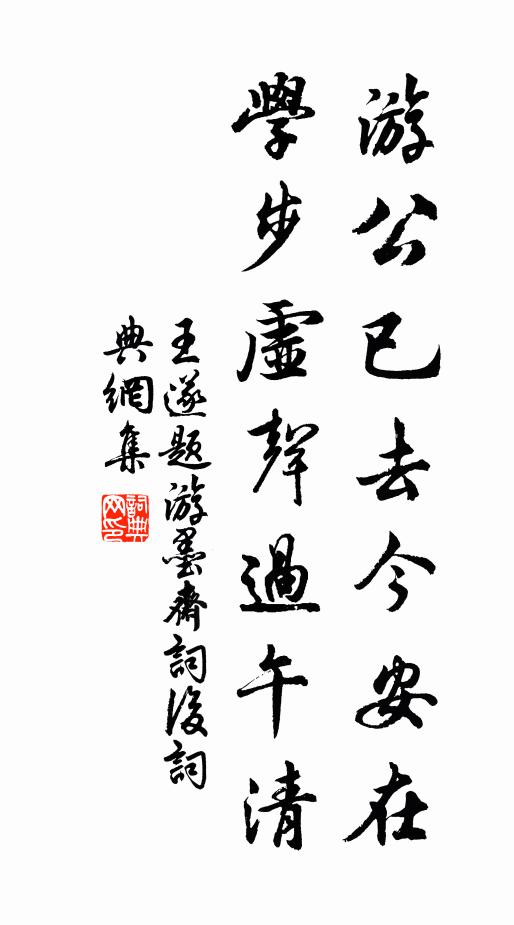 游公已去今安在
學步虛聲過午清
王遂題游墨齋詞後詞
典網集
詞典網印